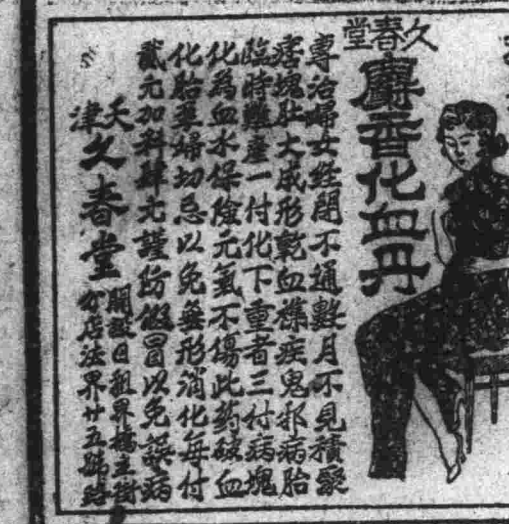 久春堂
麝香化血丹
專治婦女經閉不通數月不見積聚
痞塊肚大成形乾血癆疾鬼邪病胎
臨時難產一付化下重者三付病塊
化為血水保險元氣不傷此药破血
化胎孕婦切忌以免無形消化每付
貳元加料肆元謹防假冒以免誤病
天津久春堂
開設日租界橋立街
分店法界廿五號路